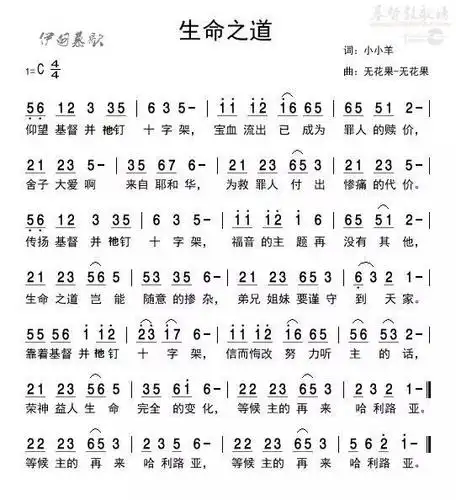 生命之道
伊甸慕歌
词：小小羊
1=C 4/4
曲：无花果-无花果
56 12 3 35 | 6 3 5 - | 11 12 16 65 | 65 51 2 - |
仰望 基督 并 祂钉 十 字 架， 宝血 流出 已 成为 罪人 的赎 价，
21 23 5 - | 35 67 6 - | 21 23 65 3 | 35 21 2 - |
舍子 大爱 啊 来自 耶和 华， 为救 罪人 付 出 惨痛 的代 价。
56 12 3 35 | 6 3 5 - | 11 12 16 65 | 65 51 2 - |
传扬 基督 并 祂钉 十 字 架， 福音 的主 题 再 没有 其 他，
21 23 56 5 | 53 35 6 - | 21 23 65 3 | 6 23 2 1 - |
生命 之道 岂 能 随意 的掺 杂， 弟兄 姐妹 要谨 守 到 天 家。
55 56 1 12 | 23 17 6 - | 22 23 56 3 | 56 53 2 - |
靠着 基督 并 祂钉 十 字 架， 信而 悔改 努 力听 主 的 话，
21 23 56 5 | 35 61 6 - | 22 23 65 3 | 23 21 1 -
荣神 益人 生 命 完全 的变 化， 等候 主的 再 来 哈利 路 亚。
22 23 65 3 | 23 21 2 - | 22 23 65 3 | 56 2 1 -
等候 主的 再 来 哈利 路 亚， 等候 主的 再 来 哈利 路 亚。